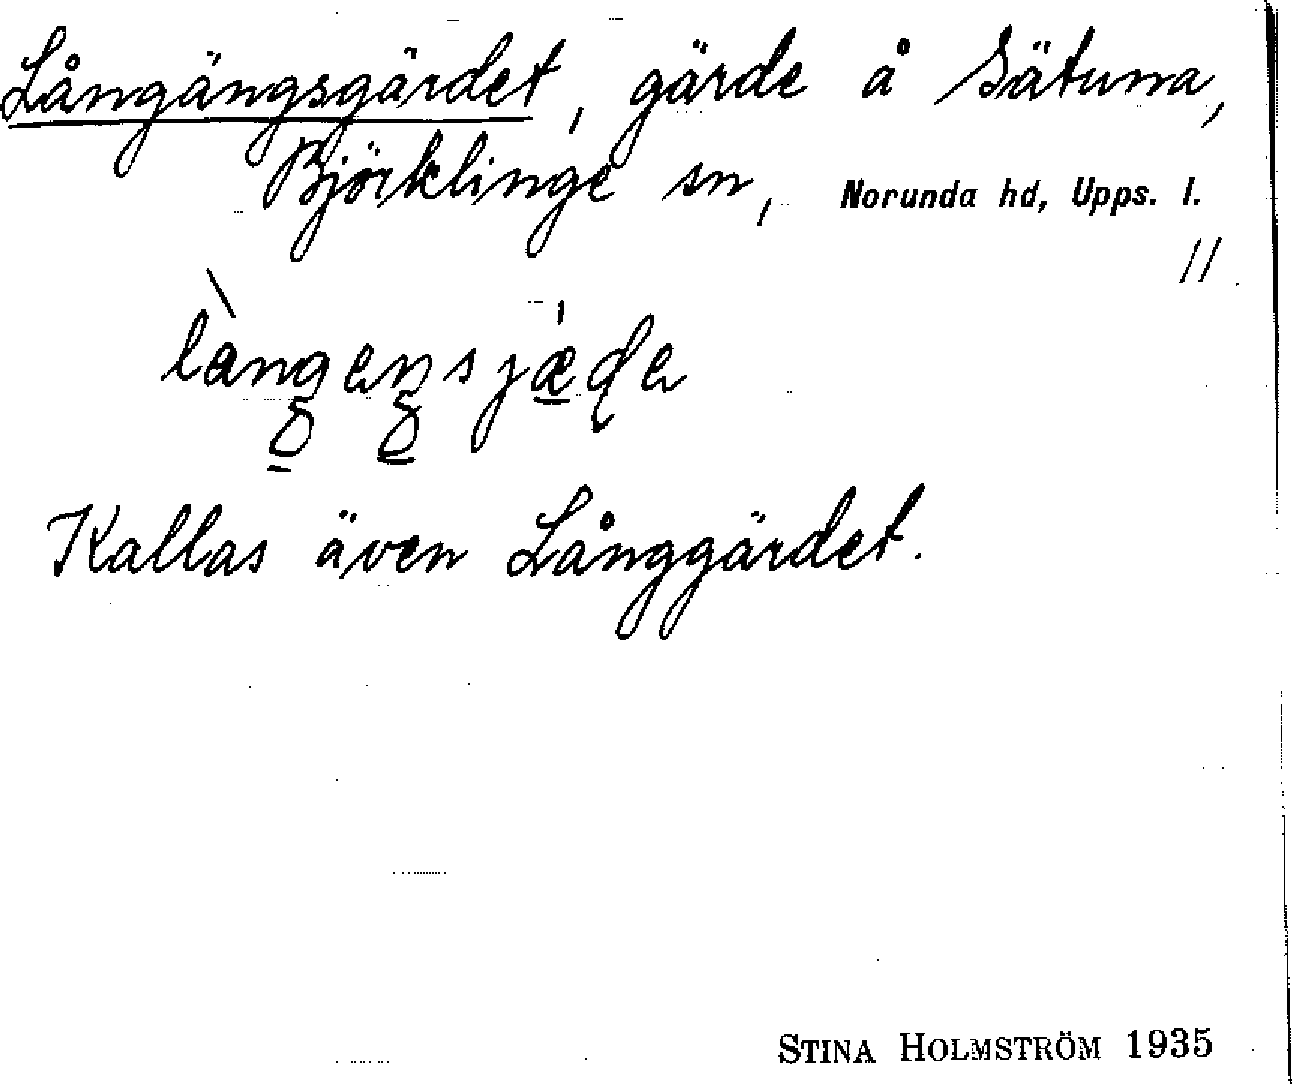 Långängsgärdet, gärde å Sätuna,
Björklinge sn, Norunda hd, Upps. l.
11
Kallas även Långgärdet.
STINA HOLMSTRÖM 1935